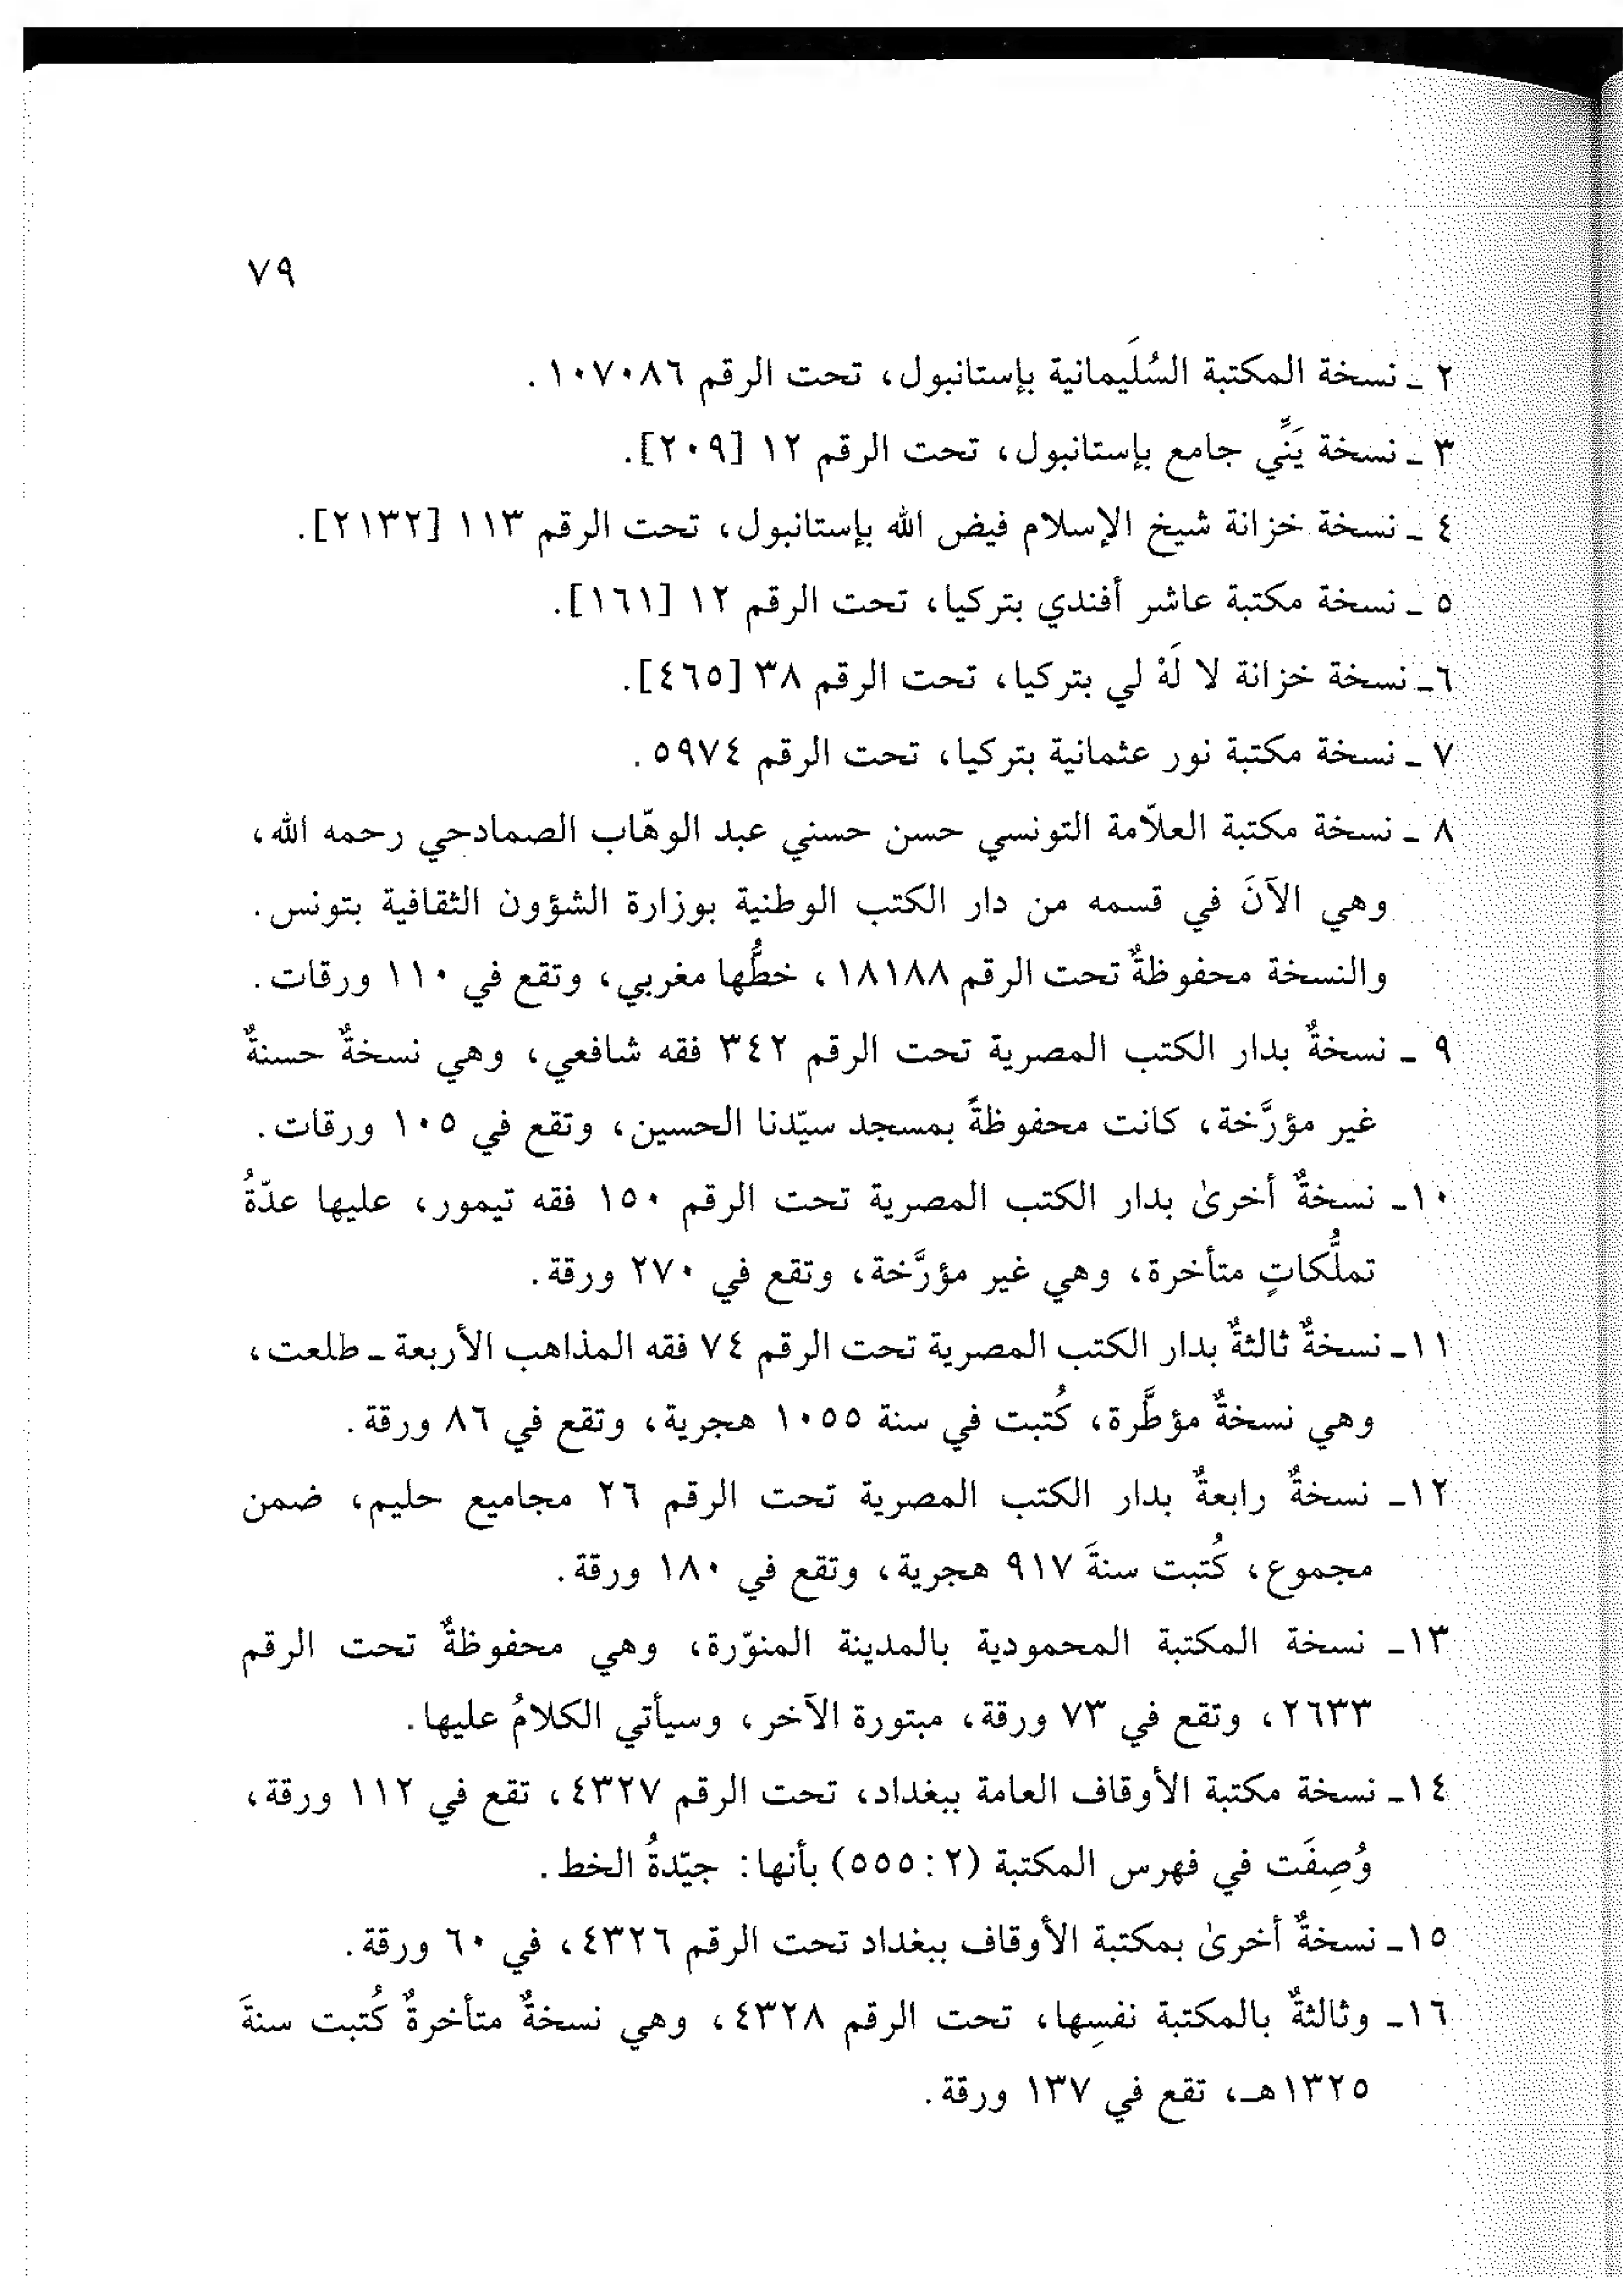 ٧٩
٢ ـ نسخة المكتبة السُلَيمانية بإستانبول، تحت الرقم ١٠٧٠٨٦.
٣ ـ نسخة يَنِّي جامع بإستانبول، تحت الرقم ١٢ [٢٠٩].
٤ ـ نسخة خزانة شيخ الإسلام فيض الله بإستانبول، تحت الرقم ١١٣ [٢١٣٢].
٥ ـ نسخة مكتبة عاشر أفندي بتركيا، تحت الرقم ١٢ [١٦١].
٦ـ نسخة خزانة لا لَهْ لي بتركيا، تحت الرقم ٣٨ [٤٦٥].
٧ ـ نسخة مكتبة نور عثمانية بتركيا، تحت الرقم ٥٩٧٤.
٨ ـ نسخة مكتبة العلاّمة التونسي حسن حسني عبد الوهّاب الصمادحي رحمه الله،
وهي الآنَ في قسمه من دار الكتب الوطنية بوزارة الشؤون الثقافية بتونس.
والنسخة محفوظةٌ تحت الرقم ١٨١٨٨، خطُّها مغربي، وتقع في ١١٠ ورقات.
٩ ـ نسخةٌ بدار الكتب المصرية تحت الرقم ٣٤٢ فقه شافعي، وهي نسخةٌ حسنةٌ
غير مؤرَّخة، كانت محفوظةً بمسجد سيّدنا الحسين، وتقع في ١٠٥ ورقات.
١٠ـ نسخةٌ أخرىٰ بدار الكتب المصرية تحت الرقم ١٥٠ فقه تيمور، عليها عدّةُ
تملُّكاتٍ متأخرة، وهي غير مؤرَّخة، وتقع في ٢٧٠ ورقة.
١١ـ نسخةٌ ثالثةٌ بدار الكتب المصرية تحت الرقم ٧٤ فقه المذاهب الأربعة ـ طلعت،
وهي نسخةٌ مؤطَّرة، كُتبت في سنة ١٠٥٥ هجرية، وتقع في ٨٦ ورقة.
١٢ـ نسخةٌ رابعةٌ بدار الكتب المصرية تحت الرقم ٢٦ مجاميع حليم، ضمن
مجموع، كُتبت سنةَ ٩١٧ هجرية، وتقع في ١٨٠ ورقة.
١٣ـ نسخة المكتبة المحمودية بالمدينة المنوّرة، وهي محفوظةٌ تحت الرقم
٢٦٣٣، وتقع في ٧٣ ورقة، مبتورة الآخر، وسيأتي الكلامُ عليها.
١٤ـ نسخة مكتبة الأوقاف العامة ببغداد، تحت الرقم ٤٣٢٧، تقع في ١١٢ ورقة،
وُصِفَت في فهرس المكتبة (٢: ٥٥٥) بأنها: جيّدةُ الخط.
١٥ـ نسخةٌ أخرىٰ بمكتبة الأوقاف ببغداد تحت الرقم ٤٣٢٦، في ٦٠ ورقة.
١٦ـ وثالثةٌ بالمكتبة نفسِها، تحت الرقم ٤٣٢٨، وهي نسخةٌ متأخرةٌ كُتبت سنةَ
١٣٢٥هـ، تقع في ١٣٧ ورقة.